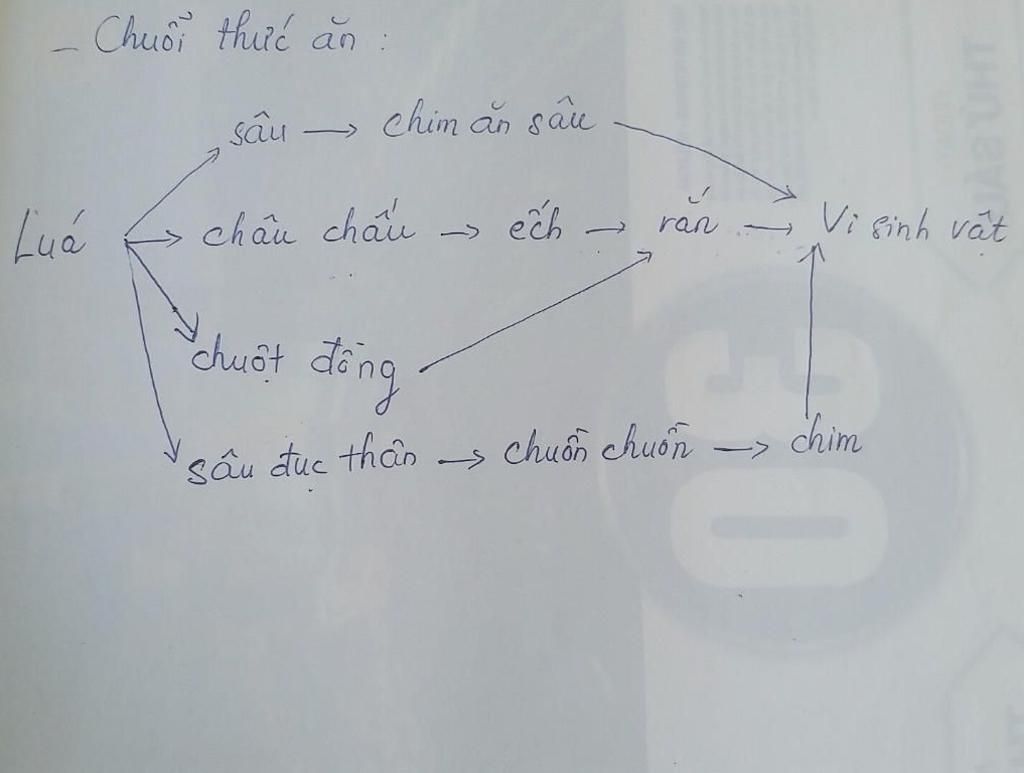 - Chuỗi thức ăn :
sâu → chim ăn sâu
Luá → châu chấu → ếch → rắn → Vi sinh vật
chuột đồng
sâu đục thân → chuồn chuồn → chim
30
THƯ